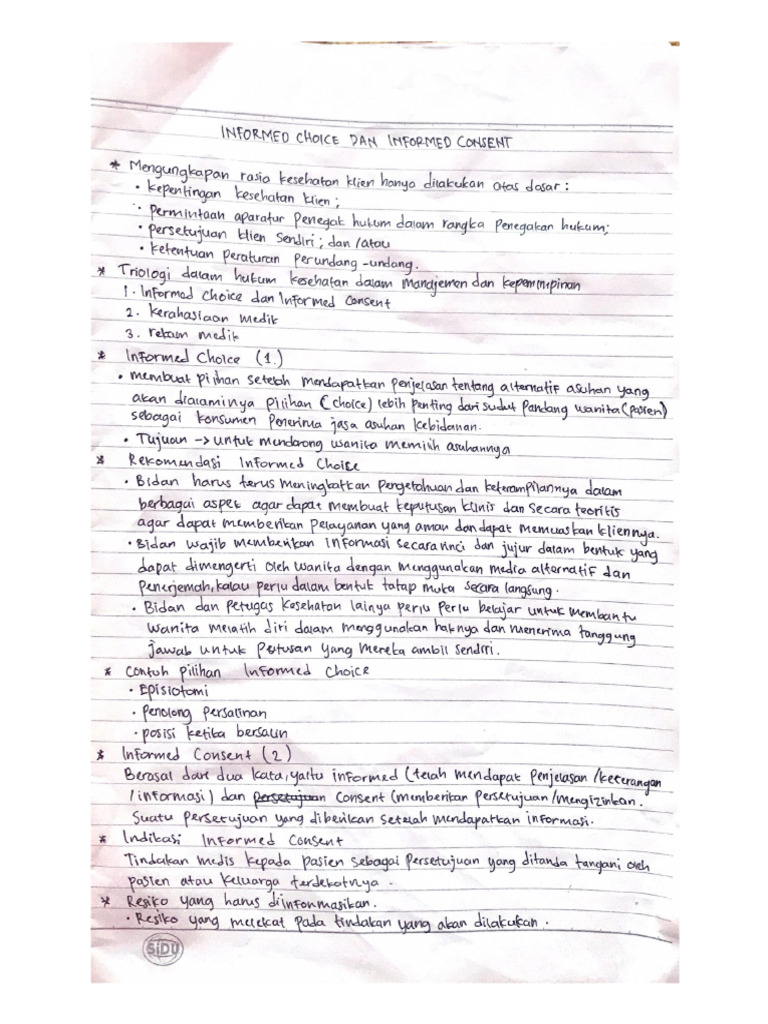 INFORMED CHOICE DAN INFORMED CONSENT
* Mengungkapan rasia kesehatan klien hanya dilakukan atas dasar :
• kepentingan kesehatan klien ;
• permintaan aparatur penegak hukum dalam rangka penegakan hukum;
• persetujuan klien sendiri ; dan /atau
• ketentuan peraturan perundang-undang.
* Triologi dalam hukum kesehatan dalam manajemen dan kepemimpinan
1. Informed choice dan Informed consent
2. kerahasiaan medik
3. rekam medik
* Informed Choice (1.)
• membuat pilihan setelah mendapatkan penjelasan tentang alternatif asuhan yang
akan dialaminya pilihan (choice) lebih penting dari sudut pandang wanita (pasien)
sebagai konsumen penerima jasa asuhan kebidanan.
• Tujuan -> untuk mendorong wanita memilih asuhannya
* Rekomendasi Informed Choice
• Bidan harus terus meningkatkan pengetahuan dan keterampilannya dalam
berbagai aspek agar dapat membuat keputusan klinis dan secara teoritis
agar dapat memberikan pelayanan yang aman dan dapat memuaskan kliennya.
• Bidan wajib memberikan informasi secara rinci dan jujur dalam bentuk yang
dapat dimengerti oleh wanita dengan menggunakan media alternatif dan
penerjemah, kalau perlu dalam bentuk tatap muka secara langsung.
• Bidan dan petugas kesehatan lainya perlu perlu belajar untuk membantu
wanita melatih diri dalam menggunakan haknya dan menerima tanggung
jawab untuk putusan yang mereka ambil sendiri.
* Contoh pilihan Informed Choice
• Episiotomi
• penolong persalinan
• posisi ketika bersalin
* Informed Consent (2)
Berasal dari dua kata, yaitu informed (telah mendapat penjelasan /keterangan
/informasi) dan persetujuan consent (memberikan persetujuan /mengizinkan.
Suatu persetujuan yang diberikan setelah mendapatkan informasi.
* Indikasi Informed Consent
Tindakan medis kepada pasien sebagai persetujuan yang ditanda tangani oleh
pasien atau keluarga terdekatnya.
* Resiko yang harus diinformasikan.
• Resiko yang melekat pada tindakan yang akan dilakukan.
SIDU